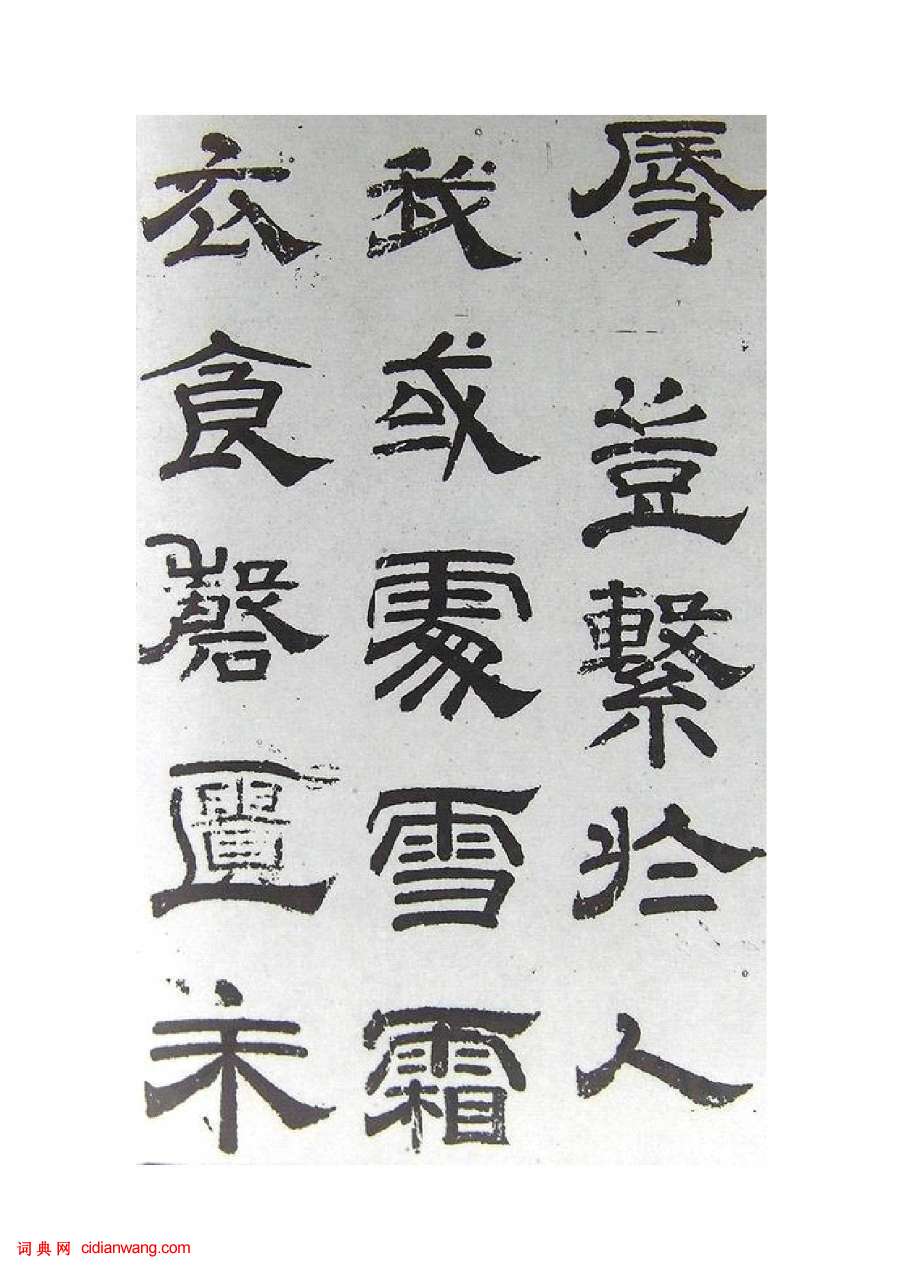 辱豈繫於人
我或處雪霜
衣食罄匱未
词典网 cidianwang.com